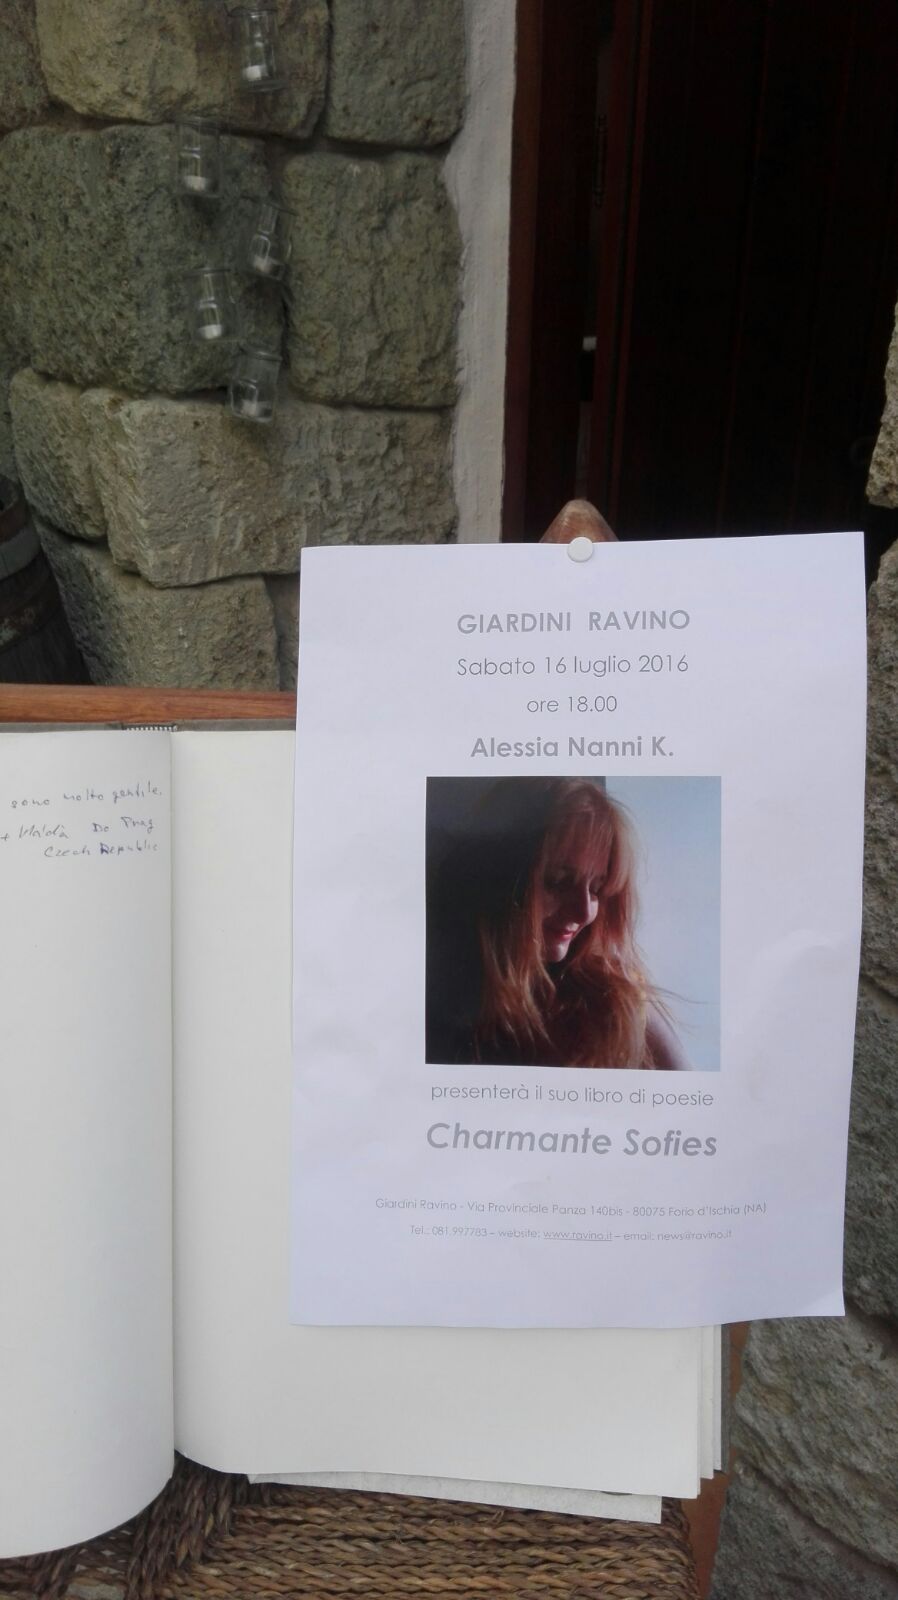 sono molto gentile.
Da Prag
Czech Republic
GIARDINI RAVINO
Sabato 16 luglio 2016
ore 18.00
Alessia Nanni K.
presenterà il suo libro di poesie
Charmante Sofies
Giardini Ravino - Via Provinciale Panza 140bis - 80075 Forio d'Ischia (NA)
Tel.: 081.997783 – website: www.ravino.it – email: news@ravino.it